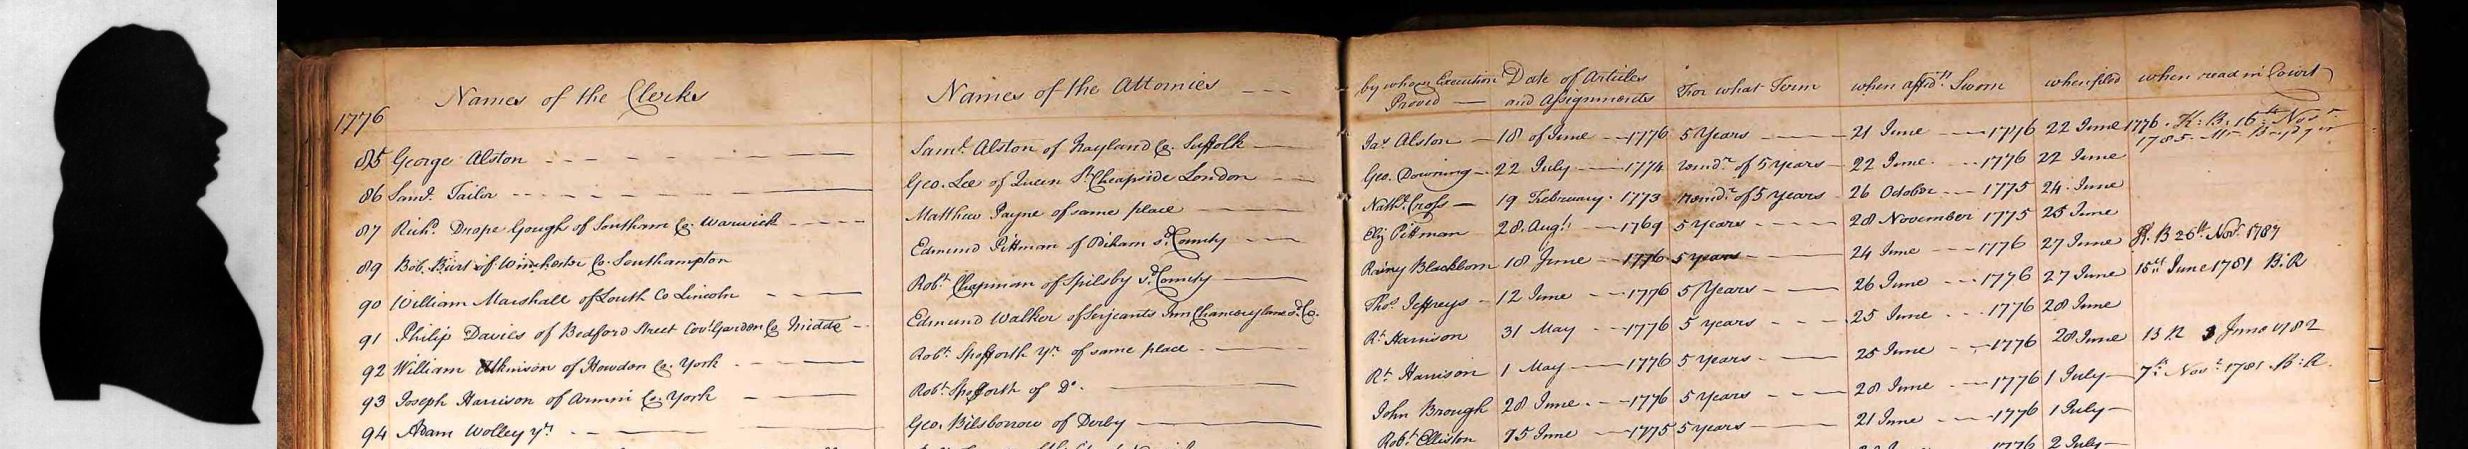 Names of the Clerks
Names of the Attornies
by whom Execution Proved
Date of Articles and Assignments
For what Term
when affidts Sworn
when filed
when read in Court
1776
85 George Alston
Saml. Alston of Nayland Co. Suffolk
Jas Alston 18 of June 1776 5 Years 21 June 1776 22 June 1776. K: B. 16th Novr
1785
86 Saml. Tailor
Geo. Lee of Queen St Cheapside London
Geo. Downing 22 July 1774 remdr of 5 years 22 June 1776 22 June
87 Richd Drope Gough of Southam Co. Warwick
Matthew Payne of same place
Nathl Cross 19 February 1773 remdr of 5 years 26 October 1775 24 June
89 Bob. Burt of Winchester Co. Southampton
Edmund Pittman of Odiham sd. County
Eliz Pittman 28 Augt 1769 5 years 28 November 1775 25 June
90 William Marshall of Louth Co Lincoln
Robt Chapman of Spilsby sd. County
Rainy Blackborn 18 June 1776 5 years 24 June 1776 27 June K. B 26th Novr 1787
91 Philip Davies of Bedford Street Covt Garden Co. Middx
Edmund Walker of Serjeants Inn Chancery Lane sd. Co.
Thos Jeffreys 12 June 1776 5 Years 26 June 1776 27 June 15th June 1781 B: R
92 William Atkinson of Howdon Co. York
Robt Spofforth yr. of same place
Rt Harrison 31 May 1776 5 years 25 June 1776 28 June
93 Joseph Harrison of Armin Co. York
Robt Spofforth of Do.
Rt Harrison 1 May 1776 5 years 25 June 1776 28 June B R 3 June 1782
94 Adam Wolley yr.
Geo. Bilsborrow of Derby
John Brough 28 June 1776 5 years 28 June 1776 1 July 7th Novr 1781 B: R.
Robt Elliston 15 June 1775 5 years 21 June 1776 1 July
1776 2 July